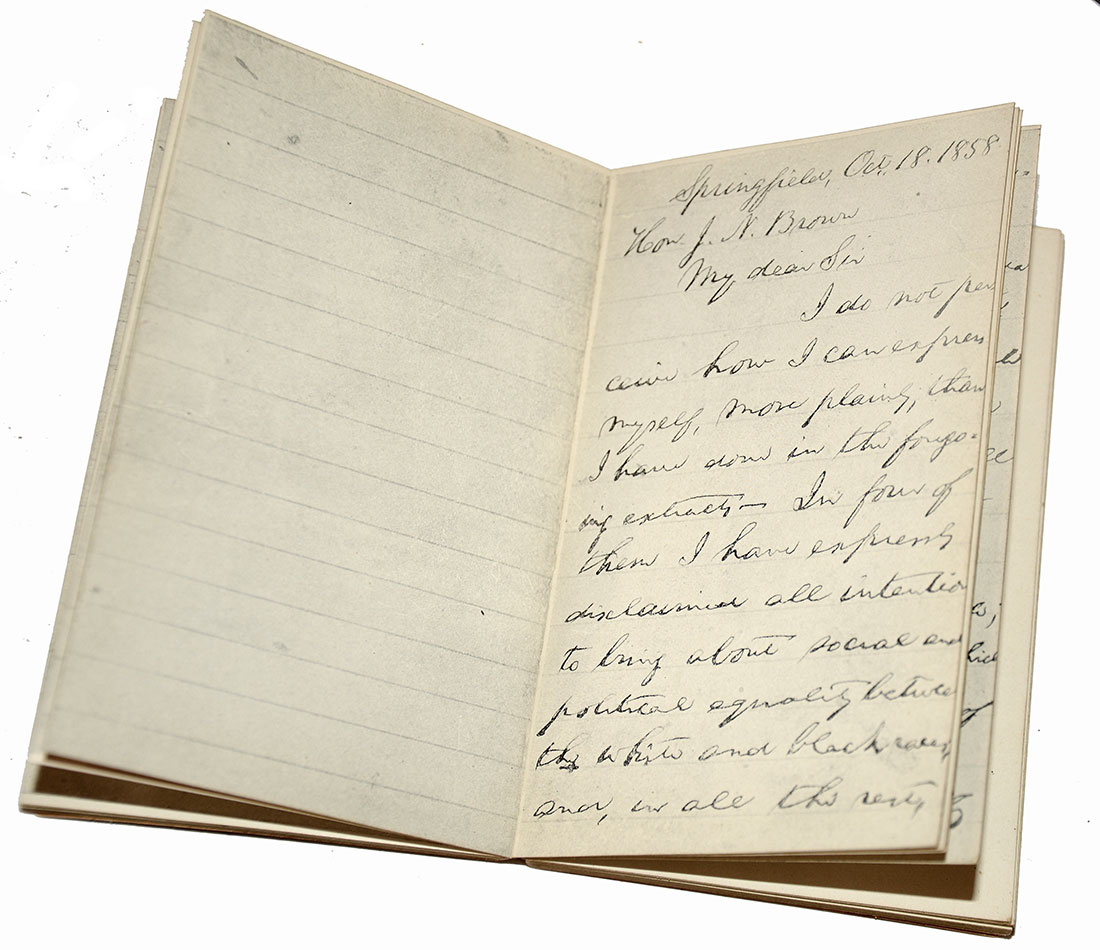 Springfield, Oct. 18. 1858
Hon. J. N. Brown
My dear Sir
I do not per
ceive how I can express
myself, more plainly, than
I have done in the forego-
ing extracts— In four of
them I have expressly
disclaimed all intention
to bring about social and
political equality between
the white and black races,
and, in all the rest,